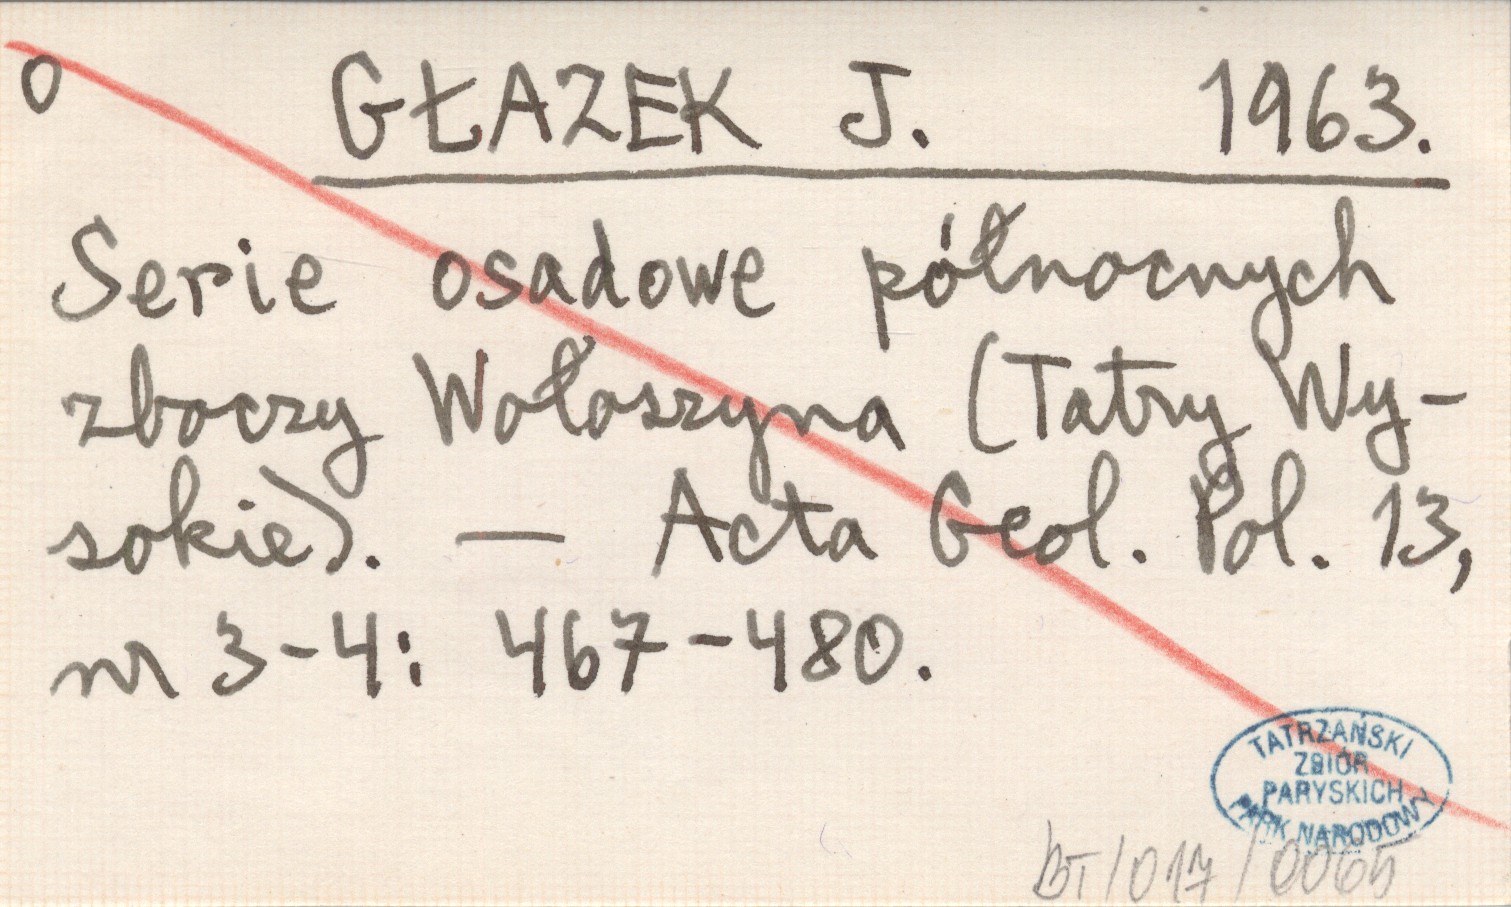 O GŁAZEK J. 1963.
Serie osadowe północnych
zboczy Wołoszyna (Tatry Wy-
sokie). — Acta Geol. Pol. 13,
nr 3-4: 467-480.
TATRZAŃSKI
ZBIÓR
PARYSKICH
PARK NARODOWY
BT/017/0065